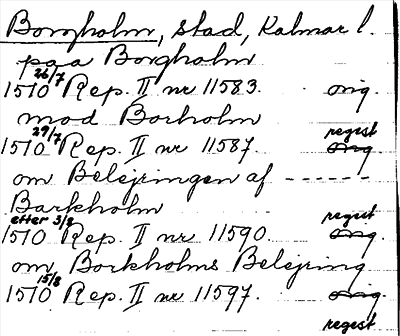 Borgholm, stad, Kalmar l.
paa Borgholm
1510 26/7 Rep. II nr 11583. orig.
mod Borholm
1510 29/7 Rep. II nr 11587. orig. regest
om Belejringen af ------
Barkholm
1510 efter 3/8 Rep. II nr 11590. orig. regest
om Borkholms Belejring
1510 15/8 Rep. II nr 11597. orig.
regest